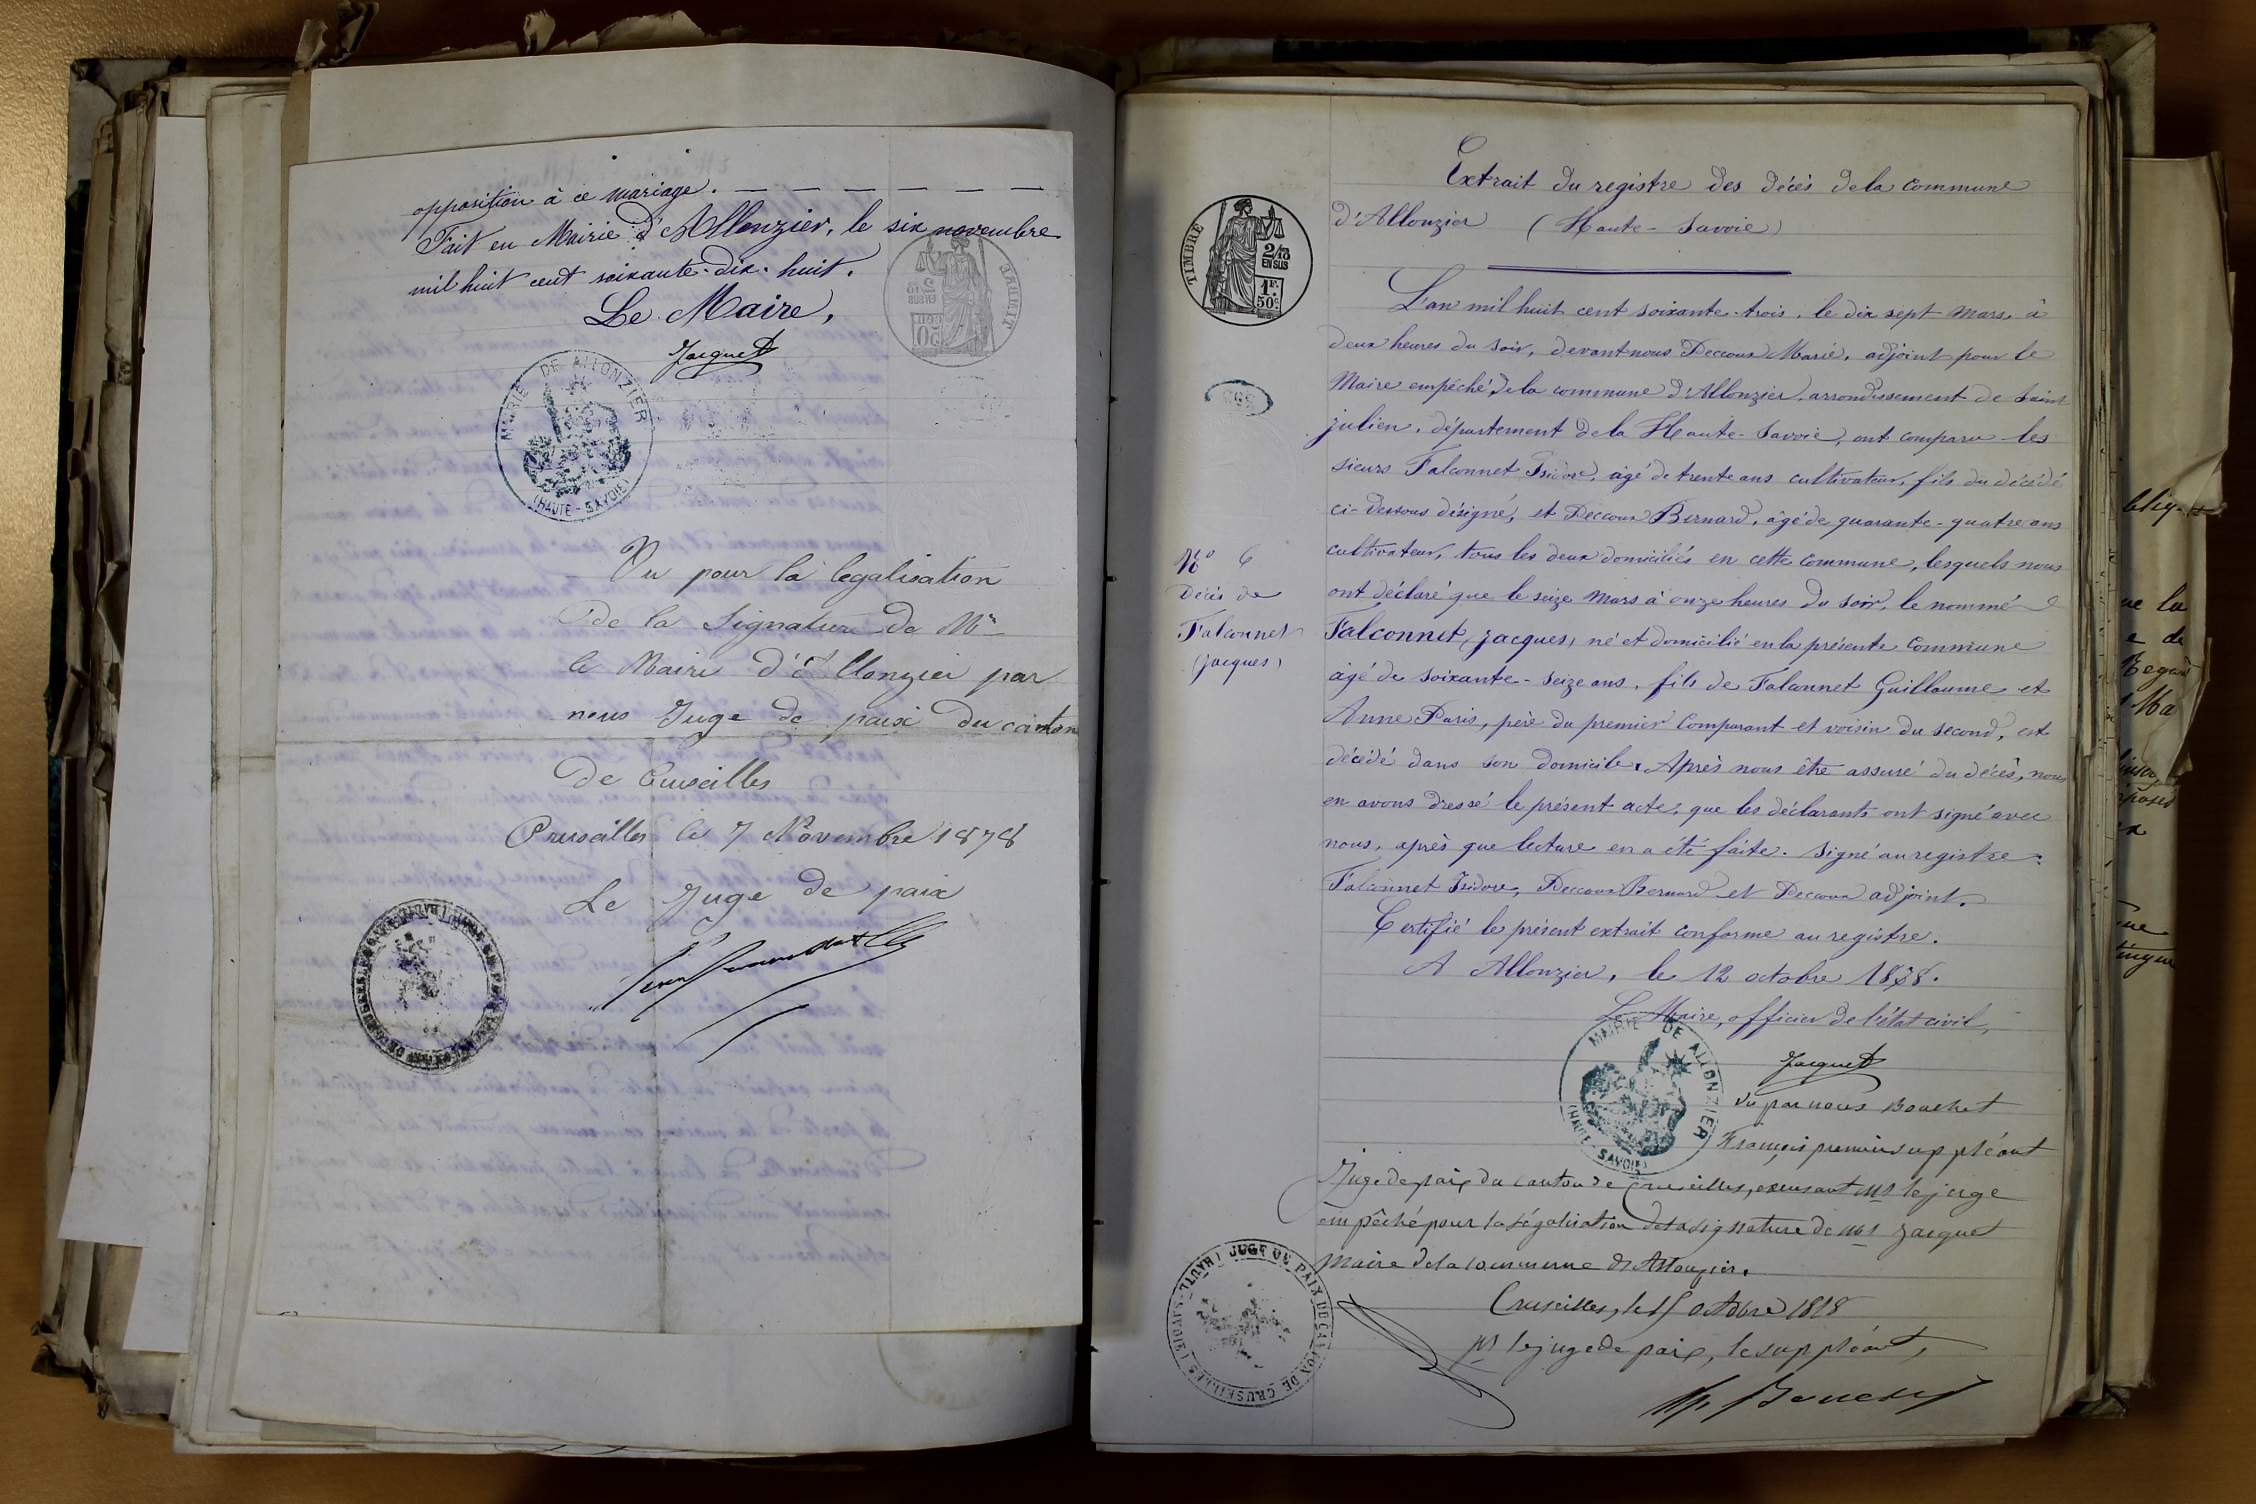 opposition à ce mariage.
Fait en Mairie d'Allonzier, le six novembre
mil huit cent soixante-dix-huit.
Le Maire,
Jacquet
MAIRIE DE ALLONZIER
(HAUTE-SAVOIE)
Vu pour la legalisation
de la Signature de Mr
le Maire d'Allonzier par
nous Juge de paix du canton
de Cruseilles
Cruseilles le 7 Novembre 1878
Le Juge de paix
Extrait du registre des décès de la commune
d'Allonzier (Haute-Savoie)
TIMBRE
2/10
EN SUS
1F.
50c.
L'an mil huit cent soixante-trois, le dix sept Mars, à
deux heures du soir, devant nous Deccoux Marie, adjoint pour le
Maire empéché, de la commune d'Allonzier, arrondissement de Saint
julien, département de la Haute-Savoie, ont comparu les
sieurs Falconnet Isidore, agé de trente ans cultivateur, fils du décédé
ci-dessous désigné, et Deccoux Bernard, âgé de quarante-quatre ans
cultivateur, tous les deux domiciliés en cette commune, lesquels nous
ont déclaré que le seize Mars à onze heures du soir, le nommé
Falconnet (Jacques) né et domicilié en la présente commune
âgé de soixante-seize ans, fils de Falconnet Guillaume et
Anne Paris, père du premier Comparant et voisin du second, est
décédé dans son domicile. Après nous être assuré du décès, nous
en avons dressé le présent acte, que les déclarants ont signé avec
nous, après que lecture en a été faite. Signé au registre:
Falconnet Isidore, Deccoux Bernard et Deccoux adjoint.
Certifié le présent extrait conforme au registre.
A Allonzier, le 12 octobre 1878.
Le Maire, officier de l'état civil,
Jacquet
N° 6
Décès de
Falconnet
(Jacques)
MAIRIE DE ALLONZIER
(HAUTE-SAVOIE)
Vu par nous Bouchet
François premier suppléant
Juge de paix du canton de Cruseilles, excusant Mr le juge
empêché pour la légalisation de la signature de Mr Jacquet
Maire de la commune d'Allonzier.
Cruseilles, le 15 octobre 1878
Pr le juge de paix, le suppléant,
Bouchet
JUGE DE PAIX DU CANTON DE CRUSEILLES (HAUTE-SAVOIE)